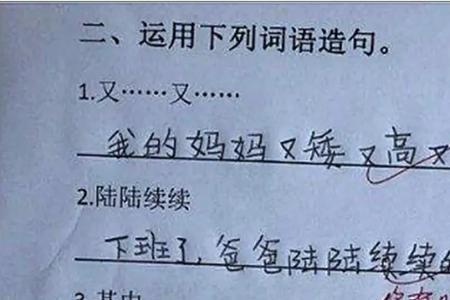 二、运用下列词语造句。
1.又……又……
我的妈妈又矮又高又
2.陆陆续续
下班了,爸爸陆陆续续的
3.其中